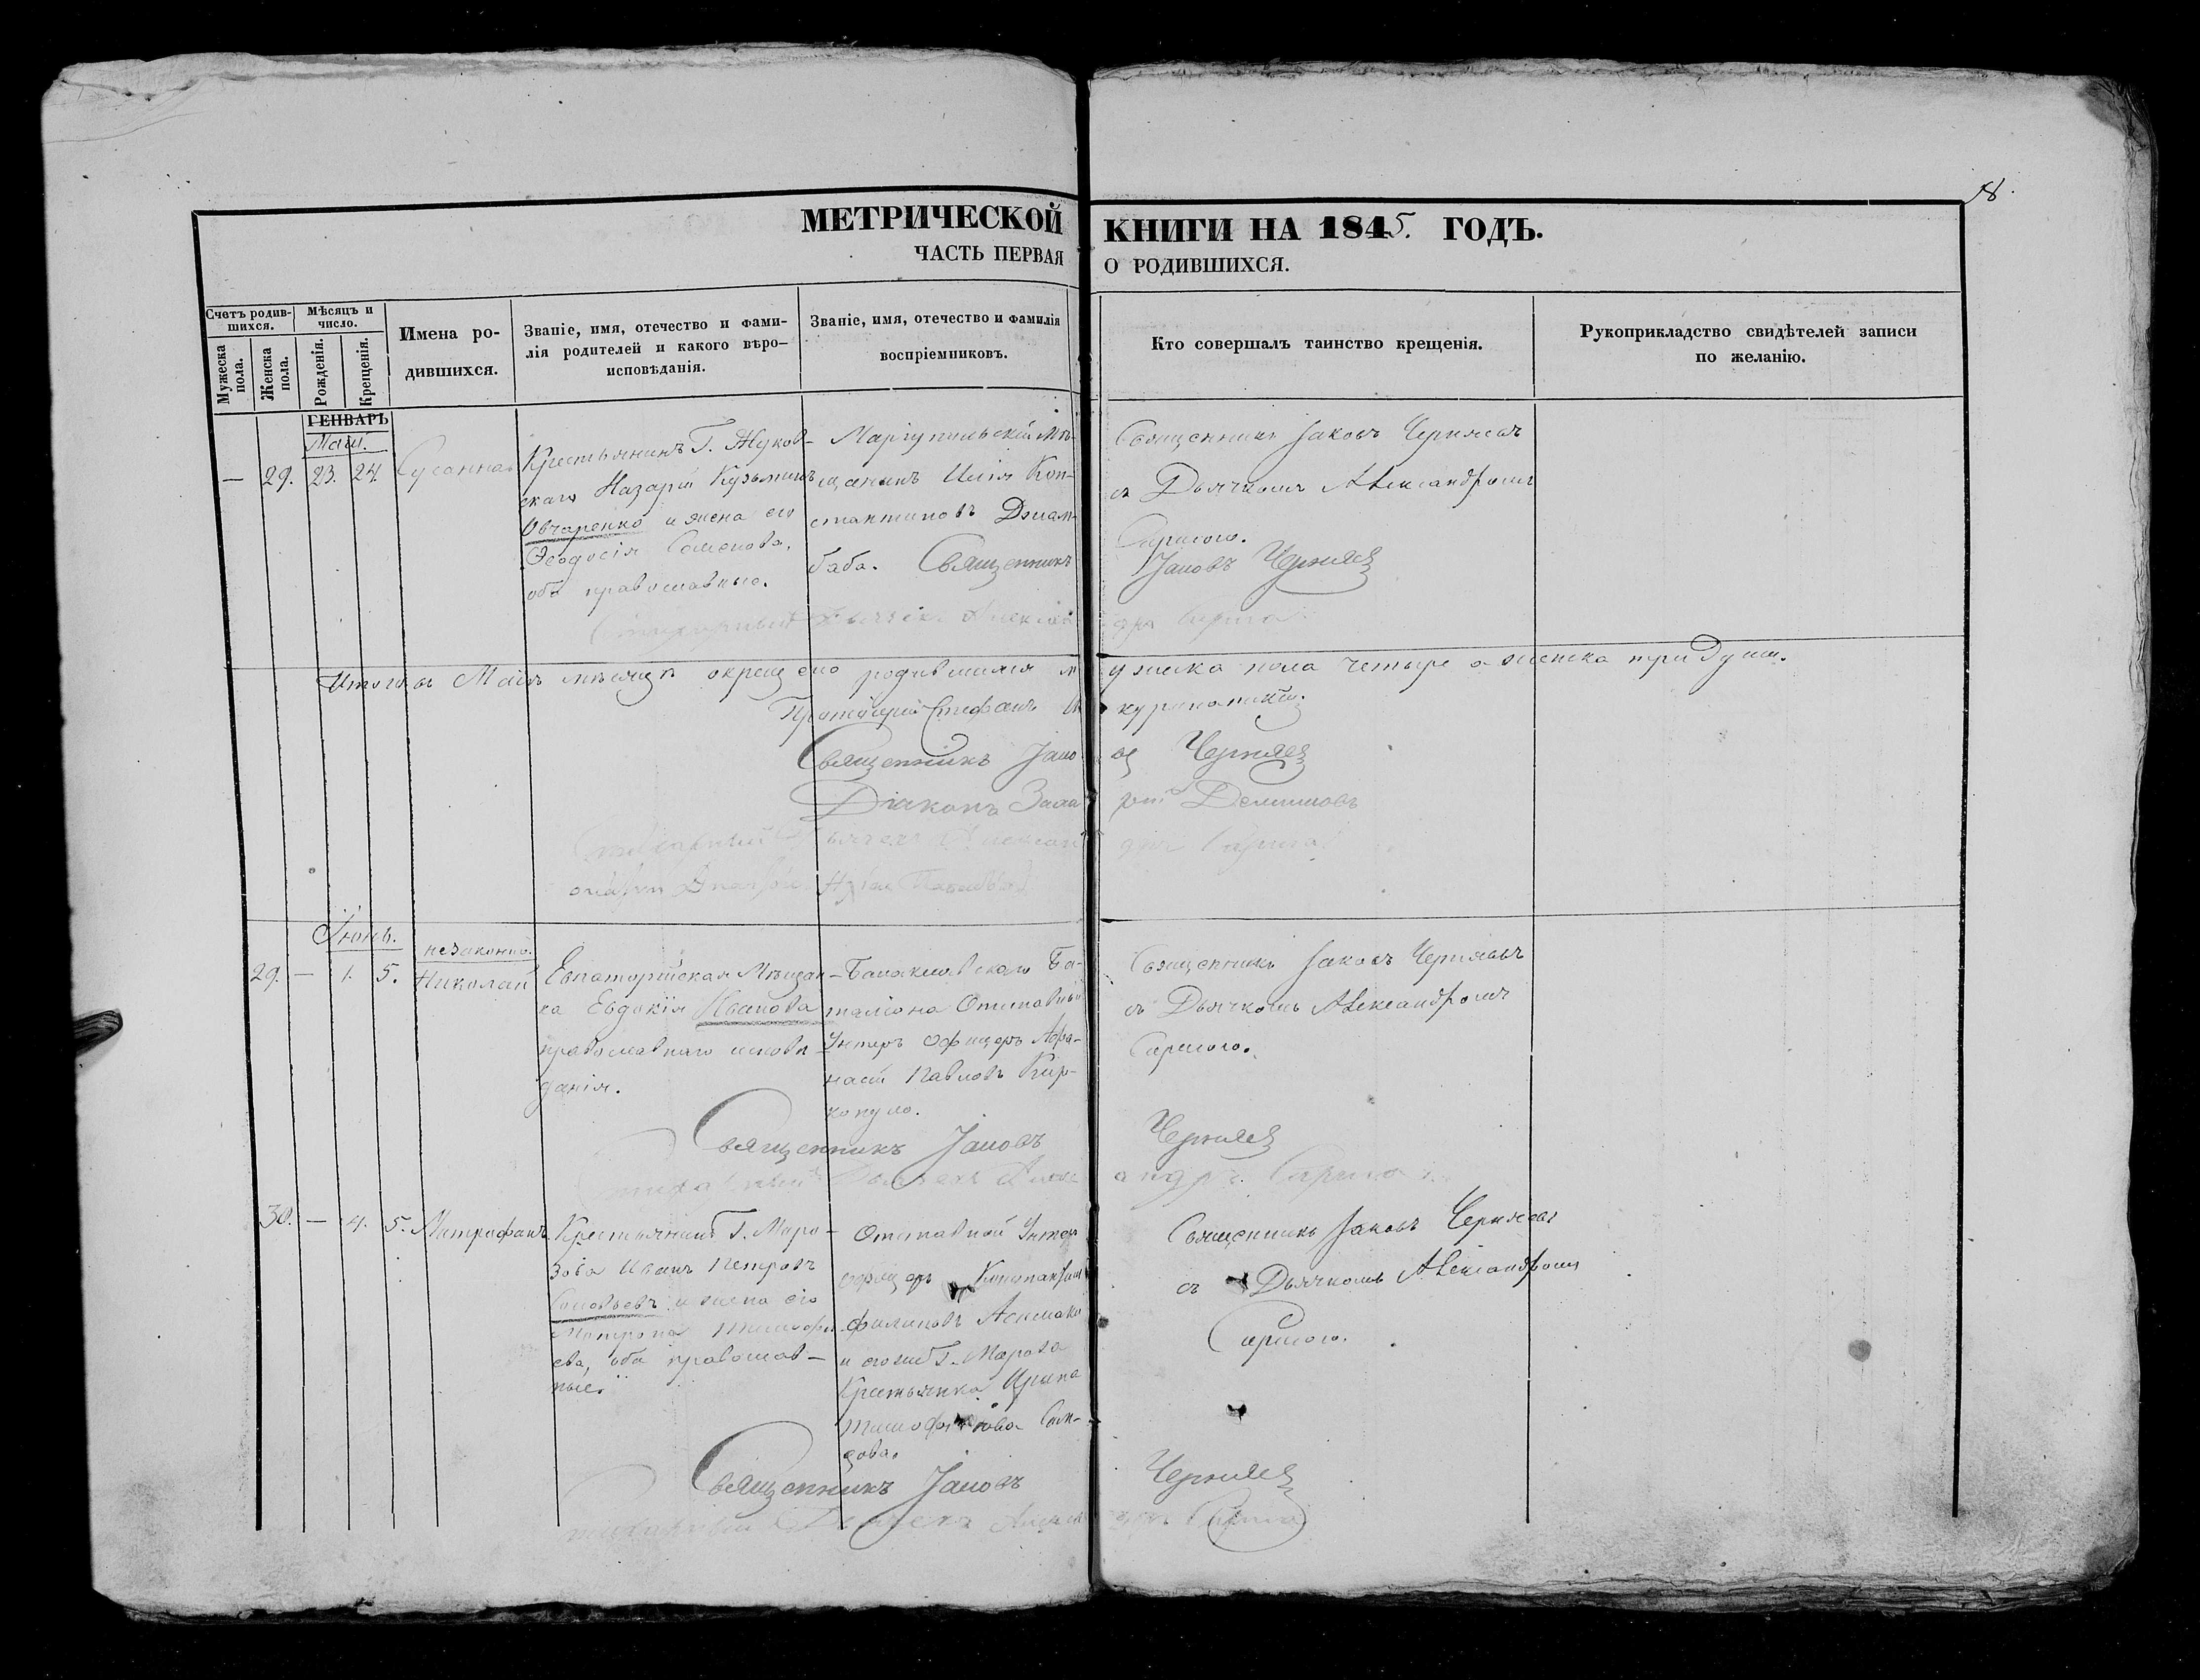 18.
МЕТРИЧЕСКОЙ КНИГИ НА 1845. ГОДЪ.
ЧАСТЬ ПЕРВАЯ О РОДИВШИХСЯ.
Счетъ родив-
шихся.
Мужеска
пола.
Женска
пола.
Мѣсяцъ и
число.
Рожденія.
Крещенія.
Имена ро-
дившихся.
Званіе, имя, отечество и фами-
лія родителей и какого вѣро-
исповѣданія.
Званіе, имя, отечество и фамилія
воспріемниковъ.
Кто совершалъ таинство крещенія.
Рукоприкладство свидѣтелей записи
по желанію.
ГЕНВАРЬ
Маій.
— 29. 23. 24.
Сусанна
Крестьянинъ Г. Жуков-
скаго Назарій Кузьминъ
Овчаренко и жена его
Ѳеодосія Семенова,
оба православные.
Маріупильскій Мѣ-
щанинъ Илія Кон-
стантиновъ Джам-
баба.
Священникъ Іаковъ Чернявъ
съ Дьячкомъ Александромъ
Священникъ Іаковъ Черняев
Стихарный Дьячекъ Александръ
Итого въ Маѣ мѣсяцѣ окрещено родившихся мужска пола четыре а женска три души.
Протоіерей Стефанъ
Священникъ Іаковъ Черняев
Діаконъ
Стихарный Дьячекъ Александръ
Іюнь.
29. — 1. 5.
незаконно.
Николай
Евпаторійская Мѣщан-
ка Евдокія Иванова
православнаго исповѣ-
данія.
Балаклавскаго Ба-
таліона Отставный
Унтеръ офицеръ Афа-
насій Павловъ Кир-
копуло.
Священникъ Іаковъ Чернявъ
съ Дьячкомъ Александромъ
Священникъ Іаковъ Черняев
Стихарный Дьячекъ Александръ
30. — 4. 5.
Митрофанъ
Крестьянинъ Г. Маро-
зова Иванъ Петровъ
Соловьевъ и жена его
Матрона Тимофе-
ева, оба православ-
ные.
Отставной Унтеръ
офицеръ Константинъ
Филиповъ
и Г. Мароза
Крестьянка Ирина
Священникъ Іаковъ Чернявъ
съ Дьячкомъ Александромъ
Священникъ Іаковъ Черняев
Стихарный Дьячекъ Александръ